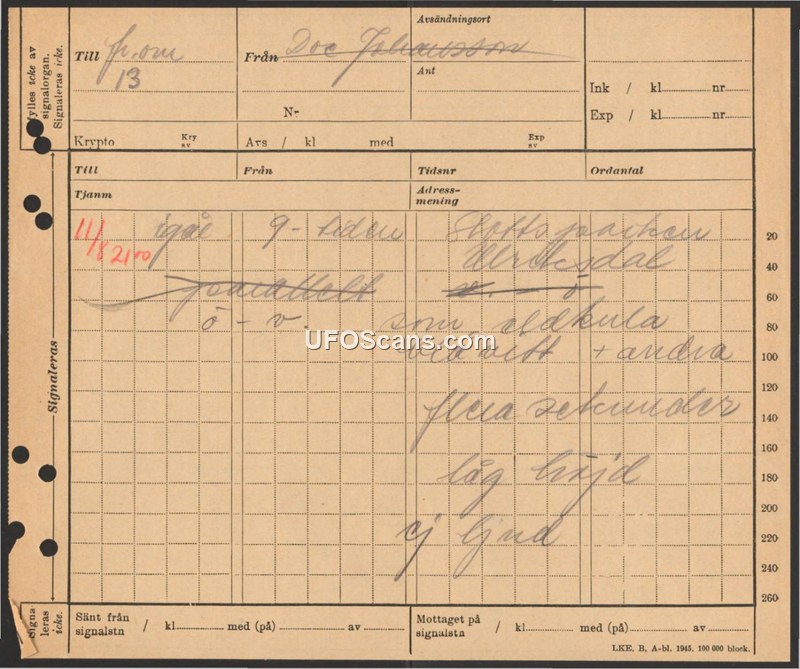 Fylles icke av
signalorgan.
Signaleras icke.
Till fr. om
13
Krypto Kry
av
Från Doc Johansson
Nr
Avs / kl med Exp
av
Avsändningsort
Ant
Ink / kl nr
Exp / kl nr
Till Från Tidsnr Ordantal
Tjänm Adress-
mening
11/8 21 00
igår 9-tiden Slottsparken
Ulriksdal
parallellt v. ö
ö - v. som eldkula
vitt + andra
flera sekunder
låg höjd
ej ljud
20
40
60
80
100
120
140
160
180
200
220
240
260
Signaleras
UFOScans.com
Signa
leras
icke.
Sänt från
signalstn / kl med (på) av
Mottaget på
signalstn / kl med (på) av
LKE. B. A-bl. 1945. 100 000 block.